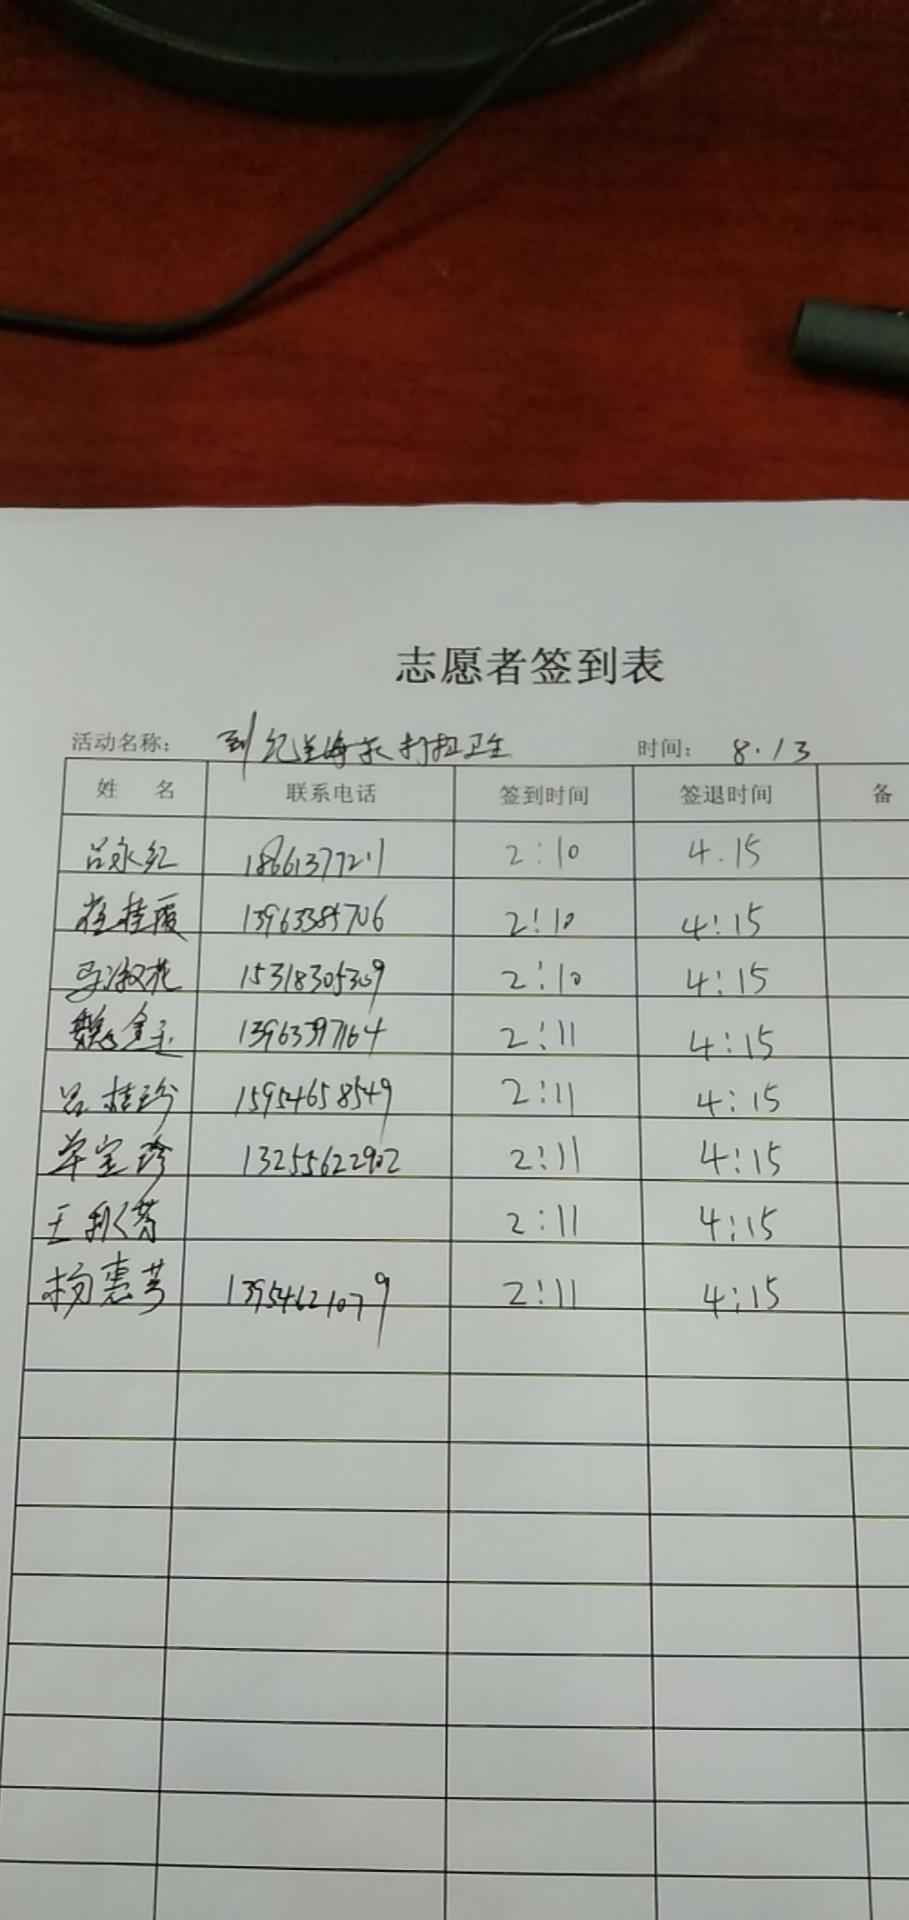 志愿者签到表
活动名称： 到纪兰海家打扫卫生 时间： 8.13
姓 名 联系电话 签到时间 签退时间 备
吕永红 2:10 4.15
桂霞 13963385706 2:10 4:15
马淑花 15318305309 2:10 4:15
魏金玉 13963397164 2:11 4:15
吕桂珍 15954658549 2:11 4:15
单宝珍 13255622902 2:11 4:15
王 2:11 4:15
杨惠芳 13954621079 2:11 4:15